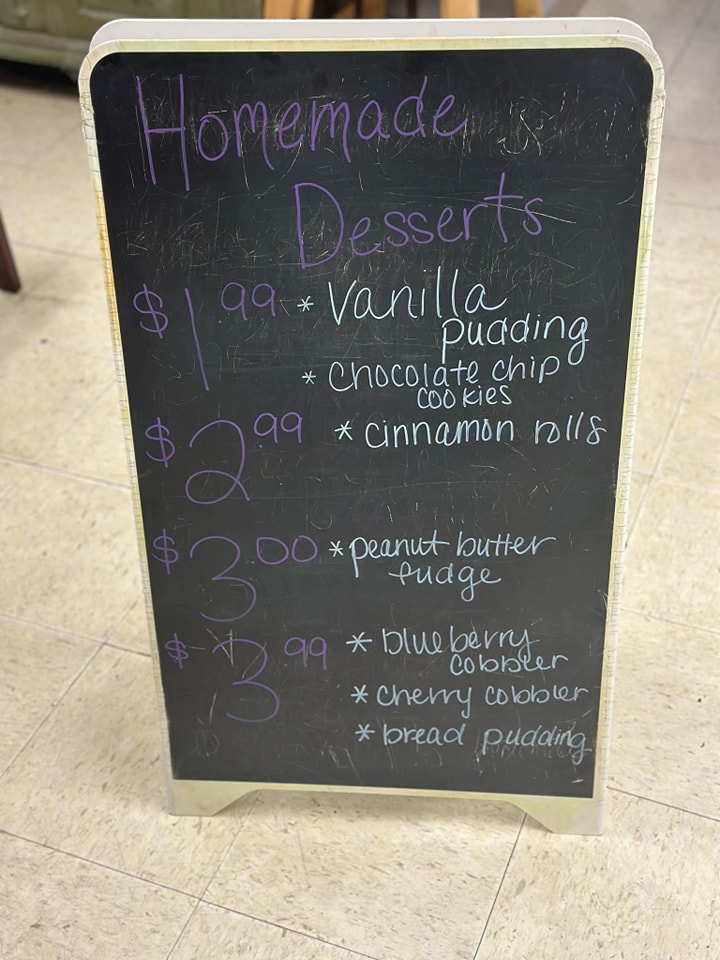 Homemade
Desserts
$1.99 * Vanilla
pudding
* Chocolate chip
cookies
$2.99 * cinnamon rolls
$3.00 * peanut butter
fudge
$3.99 * blueberry
cobbler
* cherry cobbler
* bread pudding